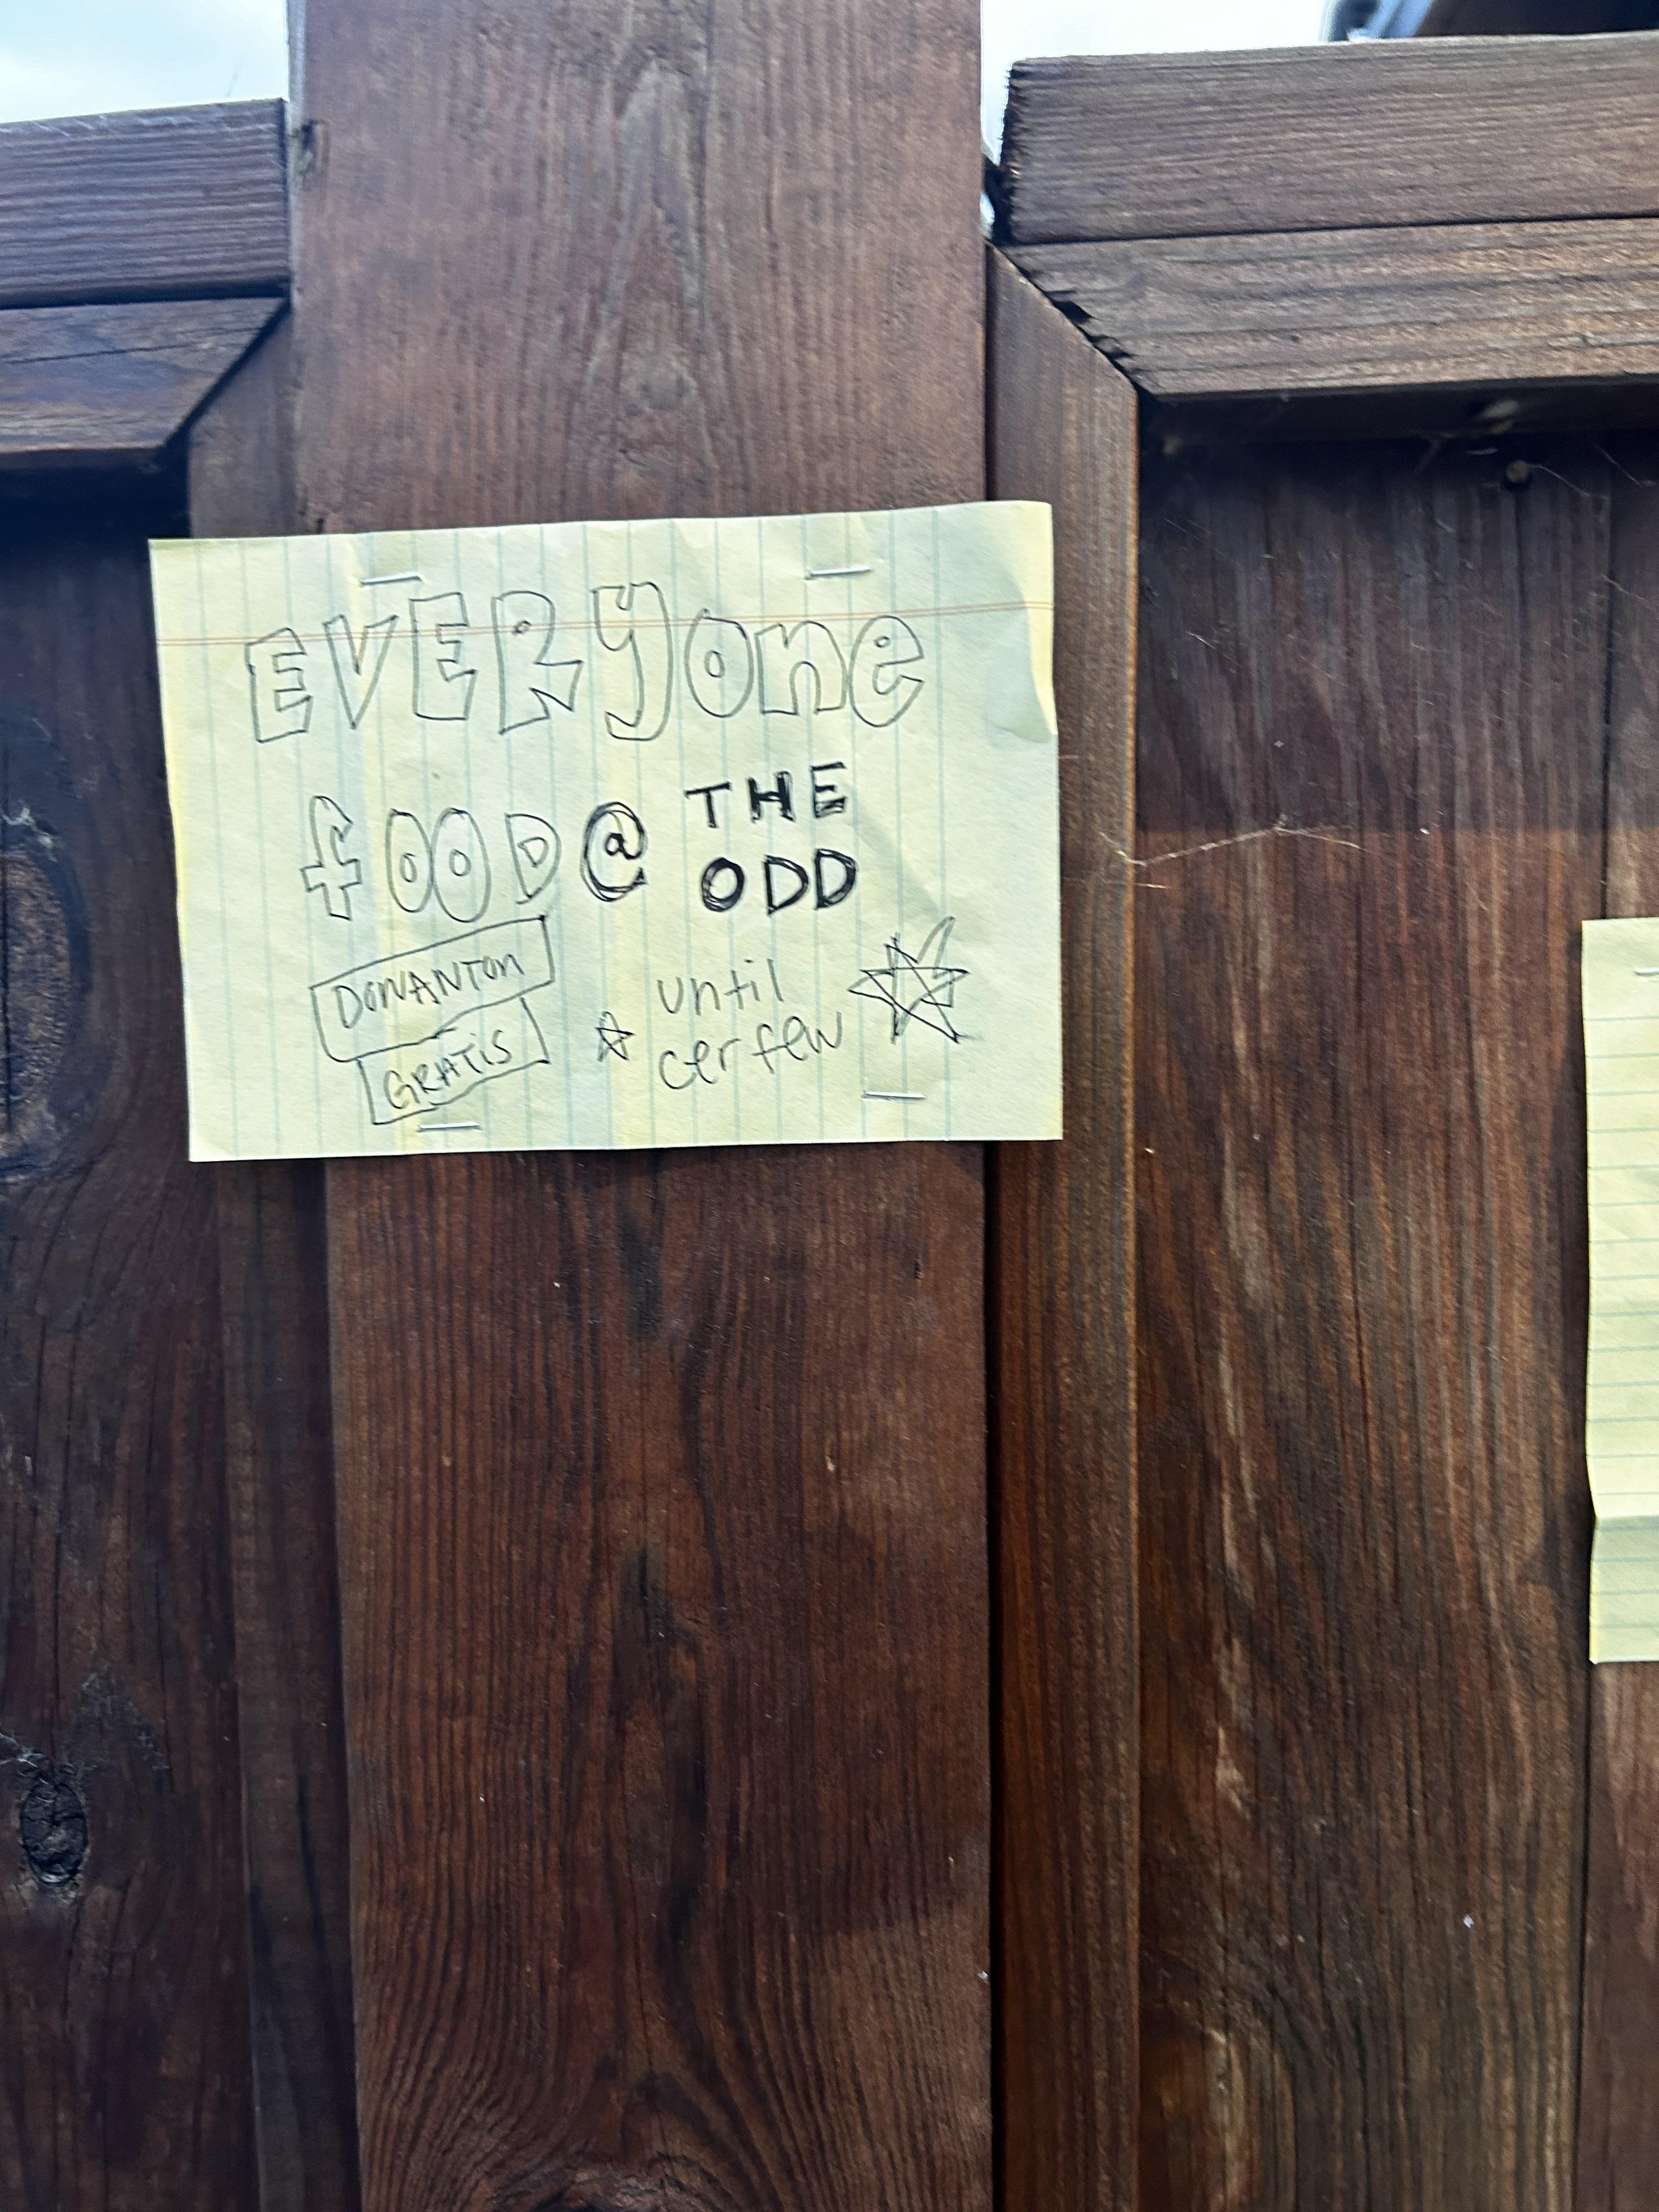 EVERyone
fOOD @ THE
ODD
DONANTON
GRATiS
until
cerfew